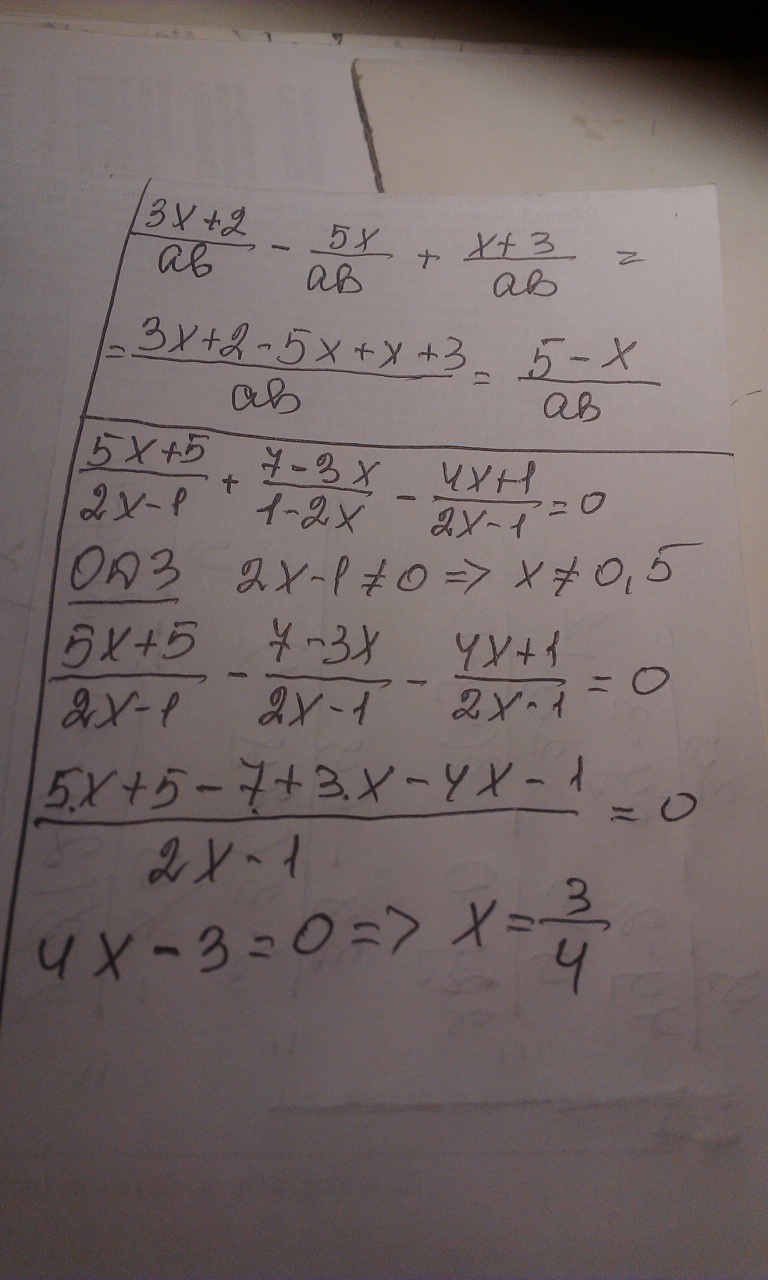 (3x+2)/ав - 5x/ав + (x+3)/ав =
= (3x+2-5x+x+3)/ав = (5-x)/ав
(5x+5)/(2x-1) + (7-3x)/(1-2x) - (4x+1)/(2x-1) = 0
ОДЗ 2x-1≠0 => x≠0,5
(5x+5)/(2x-1) - (7-3x)/(2x-1) - (4x+1)/(2x-1) = 0
(5x+5-7+3x-4x-1)/(2x-1) = 0
4x-3=0 => x=3/4